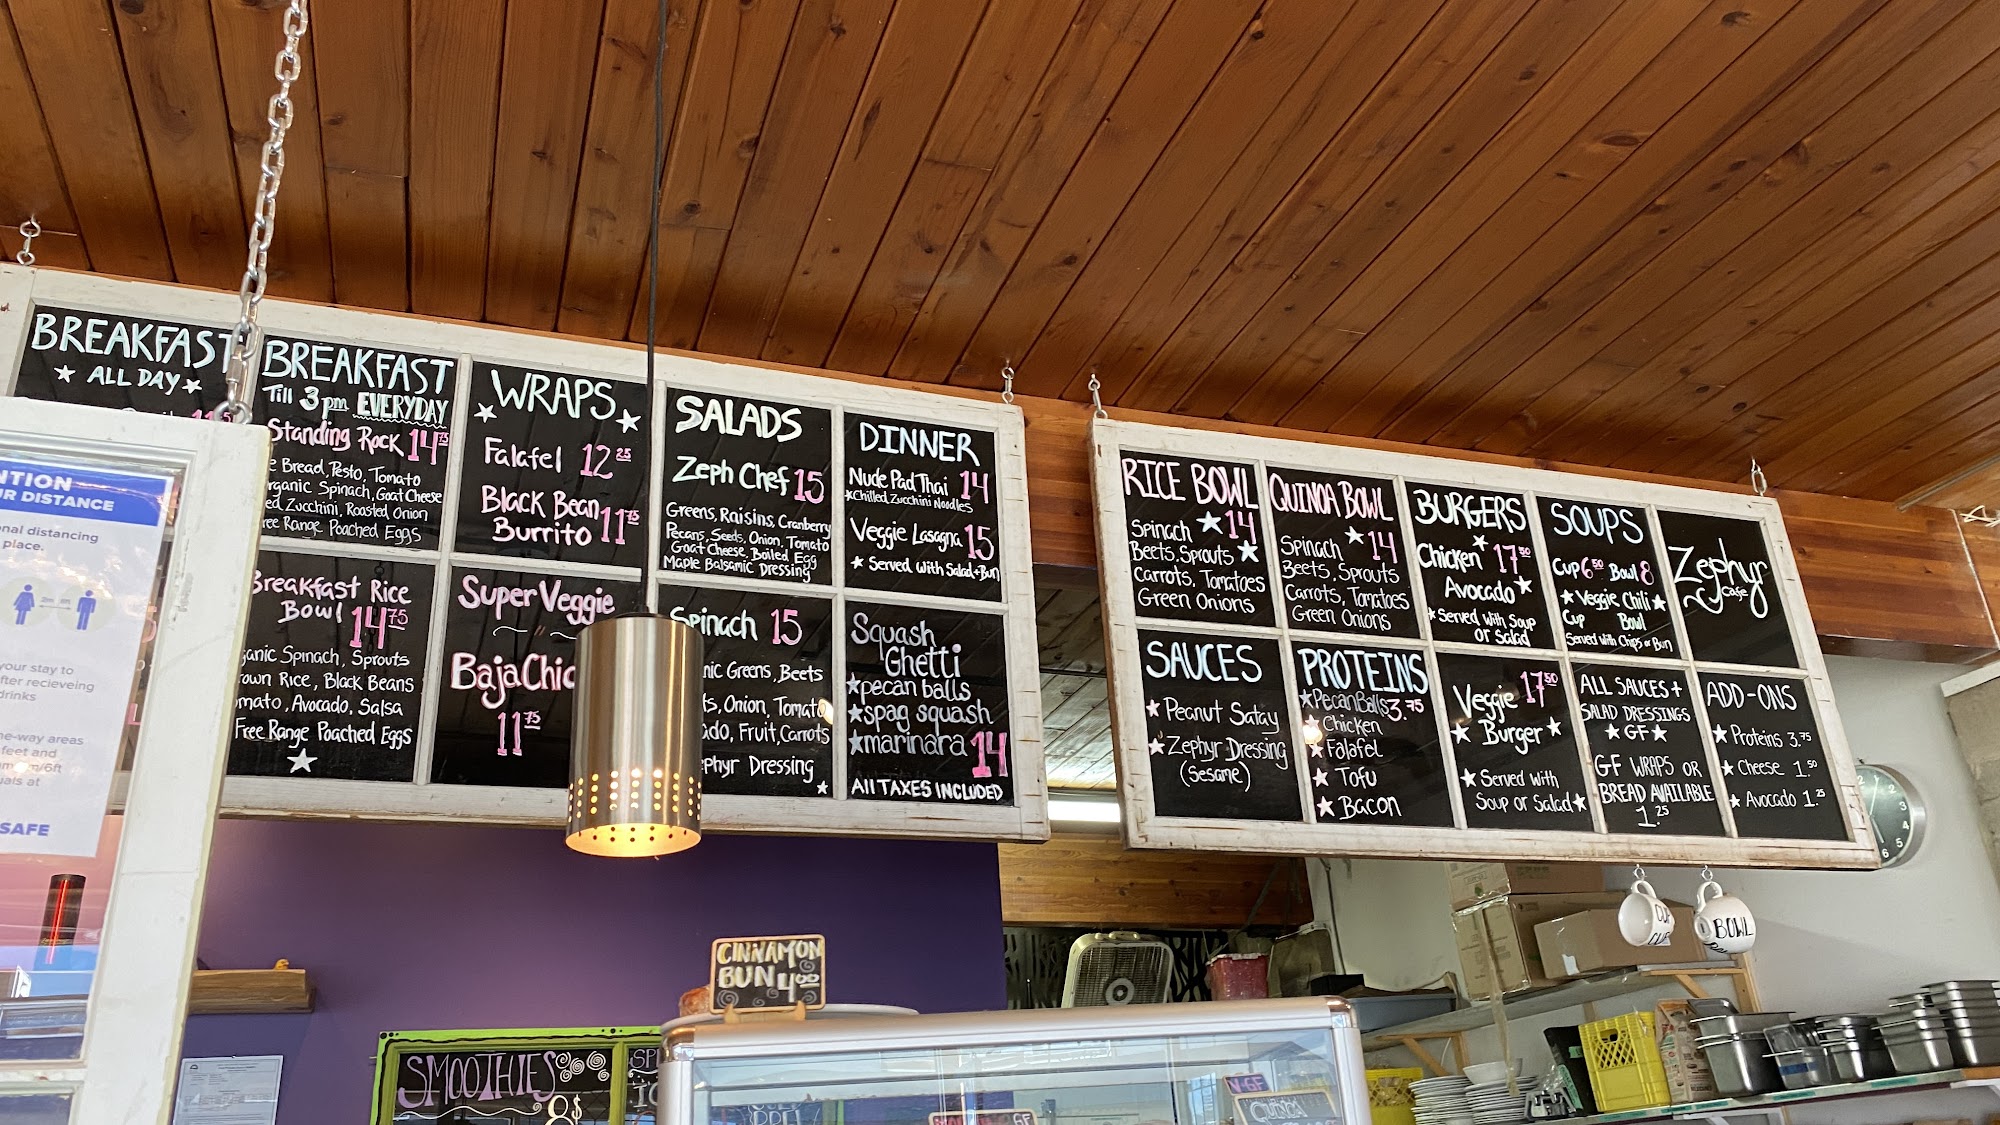 BREAKFAST
★ ALL DAY ★
BREAKFAST
Till 3pm EVERYDAY
Standing Rock 14.75
Bread, Pesto, Tomato
Spinach, Goat Cheese
Zucchini, Roasted Onion
Range Poached Eggs
Breakfast Rice
Bowl 14.75
Spinach, Sprouts
Rice, Black Beans
Avocado, Salsa
Free Range Poached Eggs
★
WRAPS
Falafel 12.25
Black Bean 11.75
Burrito
Super Veggie
Baja
11.75
SALADS
Zeph Chef 15
Greens, Raisins, Cranberry
Pecans, Seeds, Onion, Tomato
Goat Cheese, Boiled Egg
Maple Balsamic Dressing
Spinach 15
Greens, Beets
Onion, Tomato
Fruit, Carrots
Dressing
★
DINNER
Nude Pad Thai 14
★Chilled Zucchini Noodles
Veggie Lasagna 15
★ Served with Salad+Bun
Squash
Ghetti
★pecan balls
★spag squash
★marinara 14
All TAXES INCLUDED
RICE BOWL
Spinach ★ 14
Beets, Sprouts ★
Carrots, Tomatoes
Green Onions
QUINOA BOWL
Spinach ★ 14
Beets, Sprouts
Carrots, Tomatoes
Green Onions
BURGERS
Chicken 17.50
Avocado ★
★Served with Soup
or Salad
SOUPS
Cup 6.50 Bowl 8
★ Veggie Chili ★
Cup Bowl
Served with Chips or Bun
Zephyr
cafe
SAUCES
★ Peanut Satay
★ Zephyr Dressing
(Sesame)
PROTEINS
★Pecan Balls 3.75
★ Chicken
★ Falafel
★ Tofu
★ Bacon
Veggie 17.50
★ Burger ★
★ Served with
Soup or Salad★
ALL SAUCES +
SALAD DRESSINGS
★ GF ★
GF WRAPS OR
BREAD AVAILABLE
1.25
ADD-ONS
★ Proteins 3.75
★ Cheese 1.50
★ Avocado 1.25
DISTANCE
distancing
place.
your stay to
recieveing
drinks
areas
feet and
at
SAFE
CINNAMON
BUN 4.00
SMOOTHIES
8$
BOWL